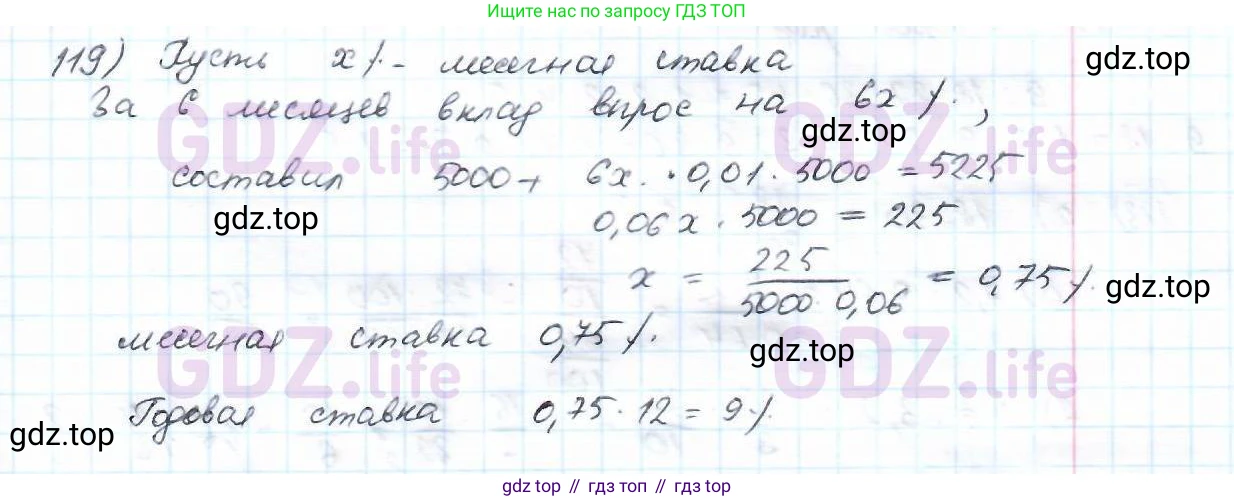 Ищите нас по запросу ГДЗ ТОП
119) Пусть x % - месячная ставка
gdz.top
За 6 месяцев вклад вырос на 6x %,
gdz.top
составил 5000 + 6x · 0,01 · 5000 = 5225
gdz.top
0,06x · 5000 = 225
x = 225 / 5000 · 0,06 = 0,75 %
gdz.top
месячная ставка 0,75 %.
gdz.top
GDZ.life
GDZ.life
GDZ.life
GDZ.life
Годовая ставка 0,75 · 12 = 9 %
gdz.top
gdz top // гдз топ // gdz top